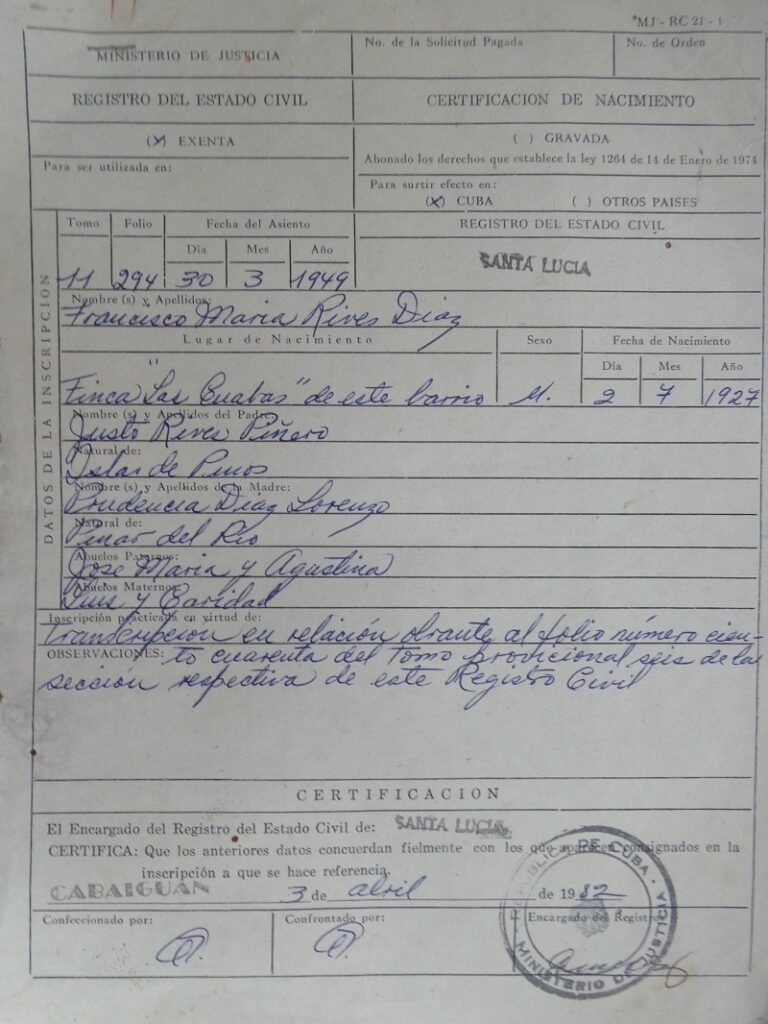 MJ - RC 21 - 1
MINISTERIO DE JUSTICIA
No. de la Solicitud Pagada
No. de Orden
REGISTRO DEL ESTADO CIVIL
CERTIFICACION DE NACIMIENTO
(X) EXENTA
( ) GRAVADA
Para ser utilizada en:
Abonado los derechos que establece la ley 1264 de 14 de Enero de 1974
Para surtir efecto en:
(X) CUBA ( ) OTROS PAISES
DATOS DE LA INSCRIPCION
Tomo Folio Fecha del Asiento
REGISTRO DEL ESTADO CIVIL
Día Mes Año
SANTA LUCIA
11 294 30 3 1949
Nombre (s) y Apellidos:
Francisco Maria Rives Diaz
Lugar de Nacimiento Sexo Fecha de Nacimiento
Día Mes Año
"Finca Las Cuabas" de este barrio M. 2 7 1927
Nombre (s) y Apellidos del Padre:
Justo Rives Piñero
Natural de:
Islas de Pinos
Nombre (s) y Apellidos de la Madre:
Prudencia Diaz Lorenzo
Natural de:
Pinar del Rio
Abuelos Paternos:
Jose Maria y Agustina
Abuelos Maternos:
Luis y Caridad
Inscripción practicada en virtud de:
Transcripcion en relación obrante al folio número cien-
OBSERVACIONES: to cuarenta del Tomo provicional seis de la
sección respectiva de este Registro Civil
CERTIFICACION
El Encargado del Registro del Estado Civil de: SANTA LUCIA
CERTIFICA: Que los anteriores datos concuerdan fielmente con los que aparecen consignados en la
inscripción a que se hace referencia.
CABAIGUAN 3 de abril de 1982
Confeccionado por: Confrontado por: Encargado del Registro
REPUBLICA DE CUBA · MINISTERIO DE JUSTICIA